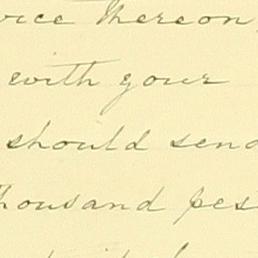 vice thereon,
with your
should send
thousand pes